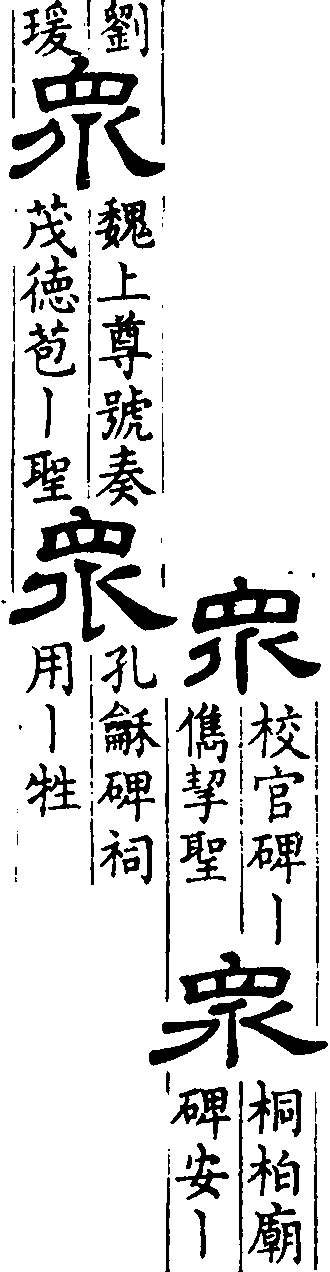 衆
校官碑丨
儁挈聖
衆
桐柏廟
碑安丨
劉
瑗
衆
魏上尊號奏
茂徳苞丨聖
衆
孔龢碑祠
用丨牲